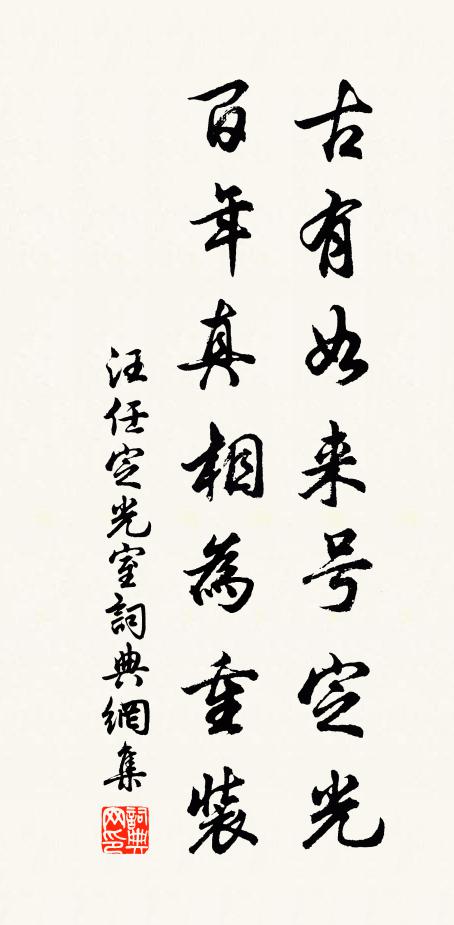 古有如来号定光
百年真相為重装
汪任定光室詞典網集
詞典网印